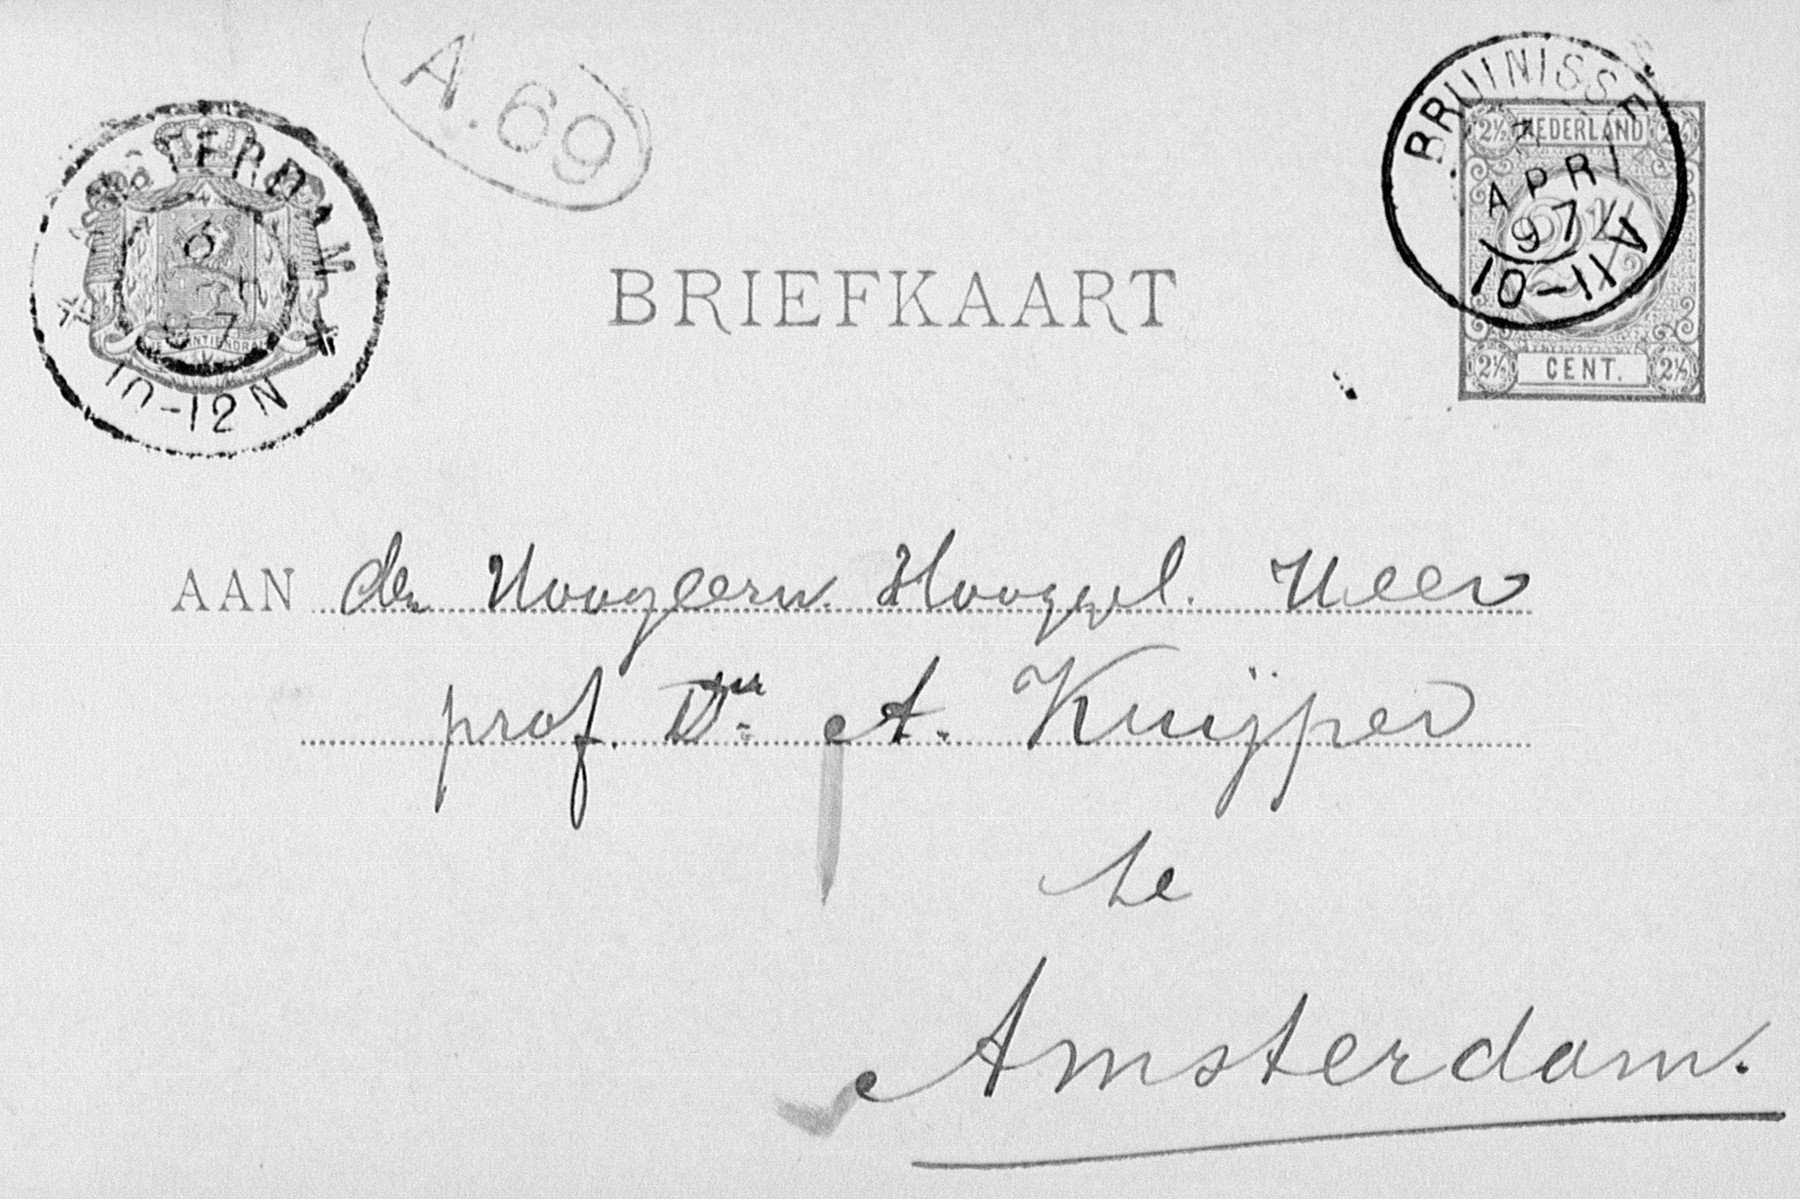 A.69
AMSTERDAM
6
97
10-12N
BRUINISSE
APR
97
10-11
2½ NEDERLAND 2½
2½ CENT. 2½
BRIEFKAART
AAN den Hoogeerw. Hooggel. Heer
prof. Dr. A. Kuijper
te
Amsterdam.